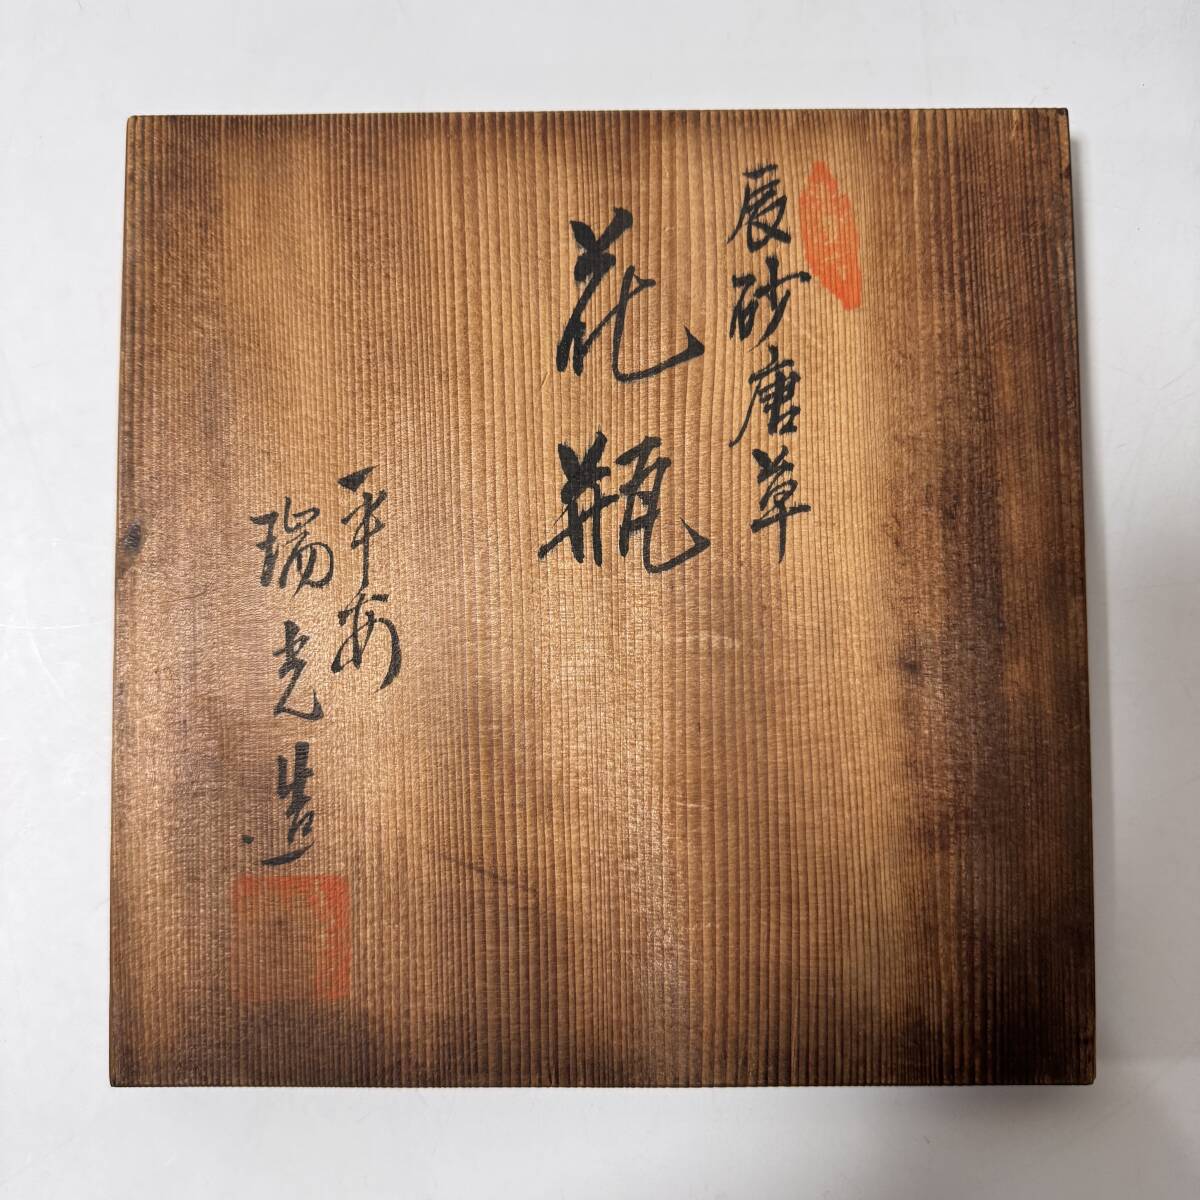 辰砂唐草
花瓶
平安
瑞光造